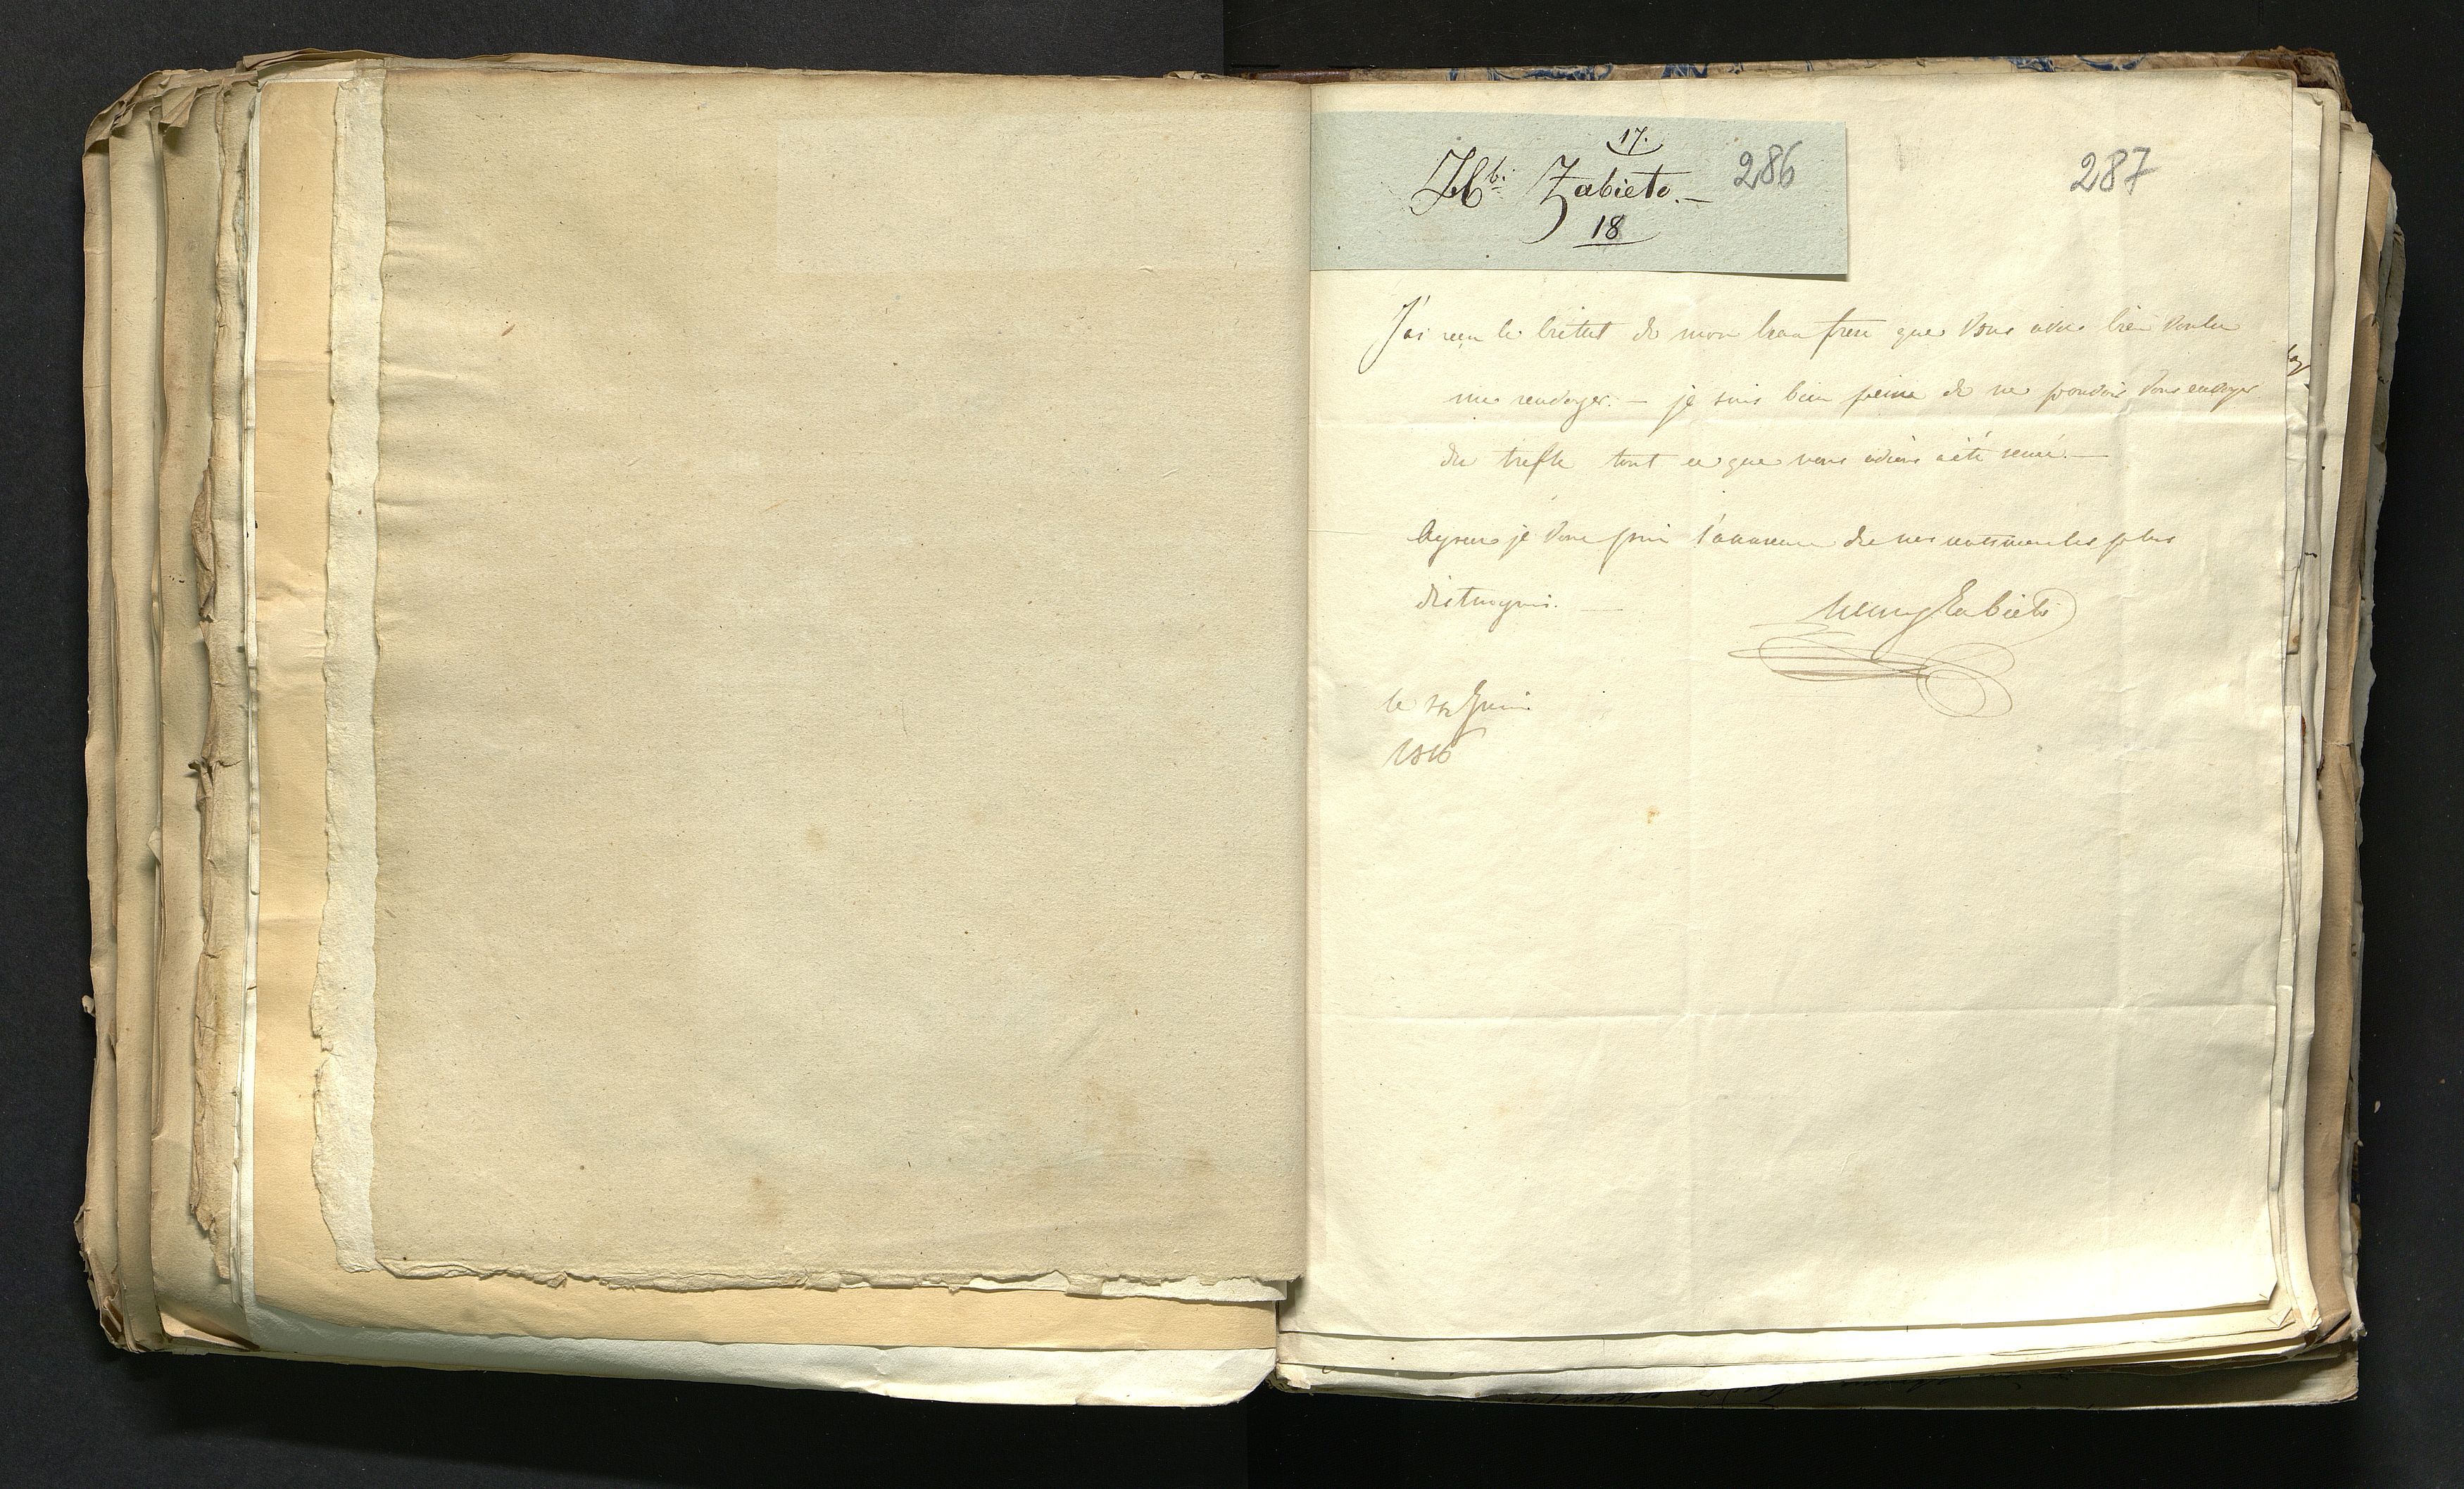 17.
Hb: Zabieto.—
18
286
287
J'ai recu le de mon beau frere que Vous avés bien Voulu
me renvoyer. — je suis bien peiné de ne pouvoir Vous envoyer
du trefle tout ce que nous avions a été semé. —
Agreez je Vous prie l'assurence de mes sentimens les plus
distingués. —
Zabieto
le Juin